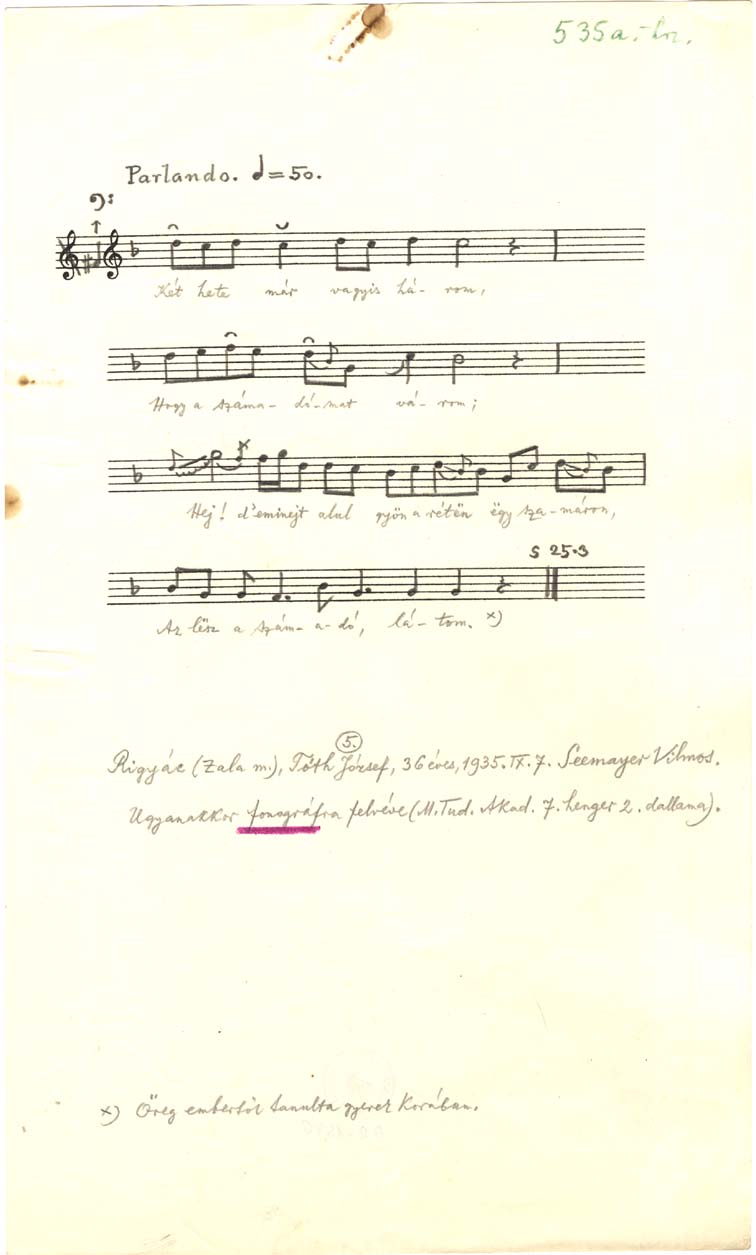 535a.
Parlando. 𝅗𝅥 = 50.
Két hete már vagyis há- rom,
Hogy a száma- dó- mat vá- rom;
Hej! d'eminejt alul gyön a rétën ëgy sza- máron,
S 25.3
Az lësz a szám- a- dó, lá- tom. x)
5.
Rigyác (Zala m.), Tóth József, 36 éves, 1935. IX. 7. Seemayer Vilmos.
Ugyanakkor fonográfra felvéve (M. Tud. Akad. 7. henger 2. dallama).
x) Öreg embertől tanulta gyerek korában.